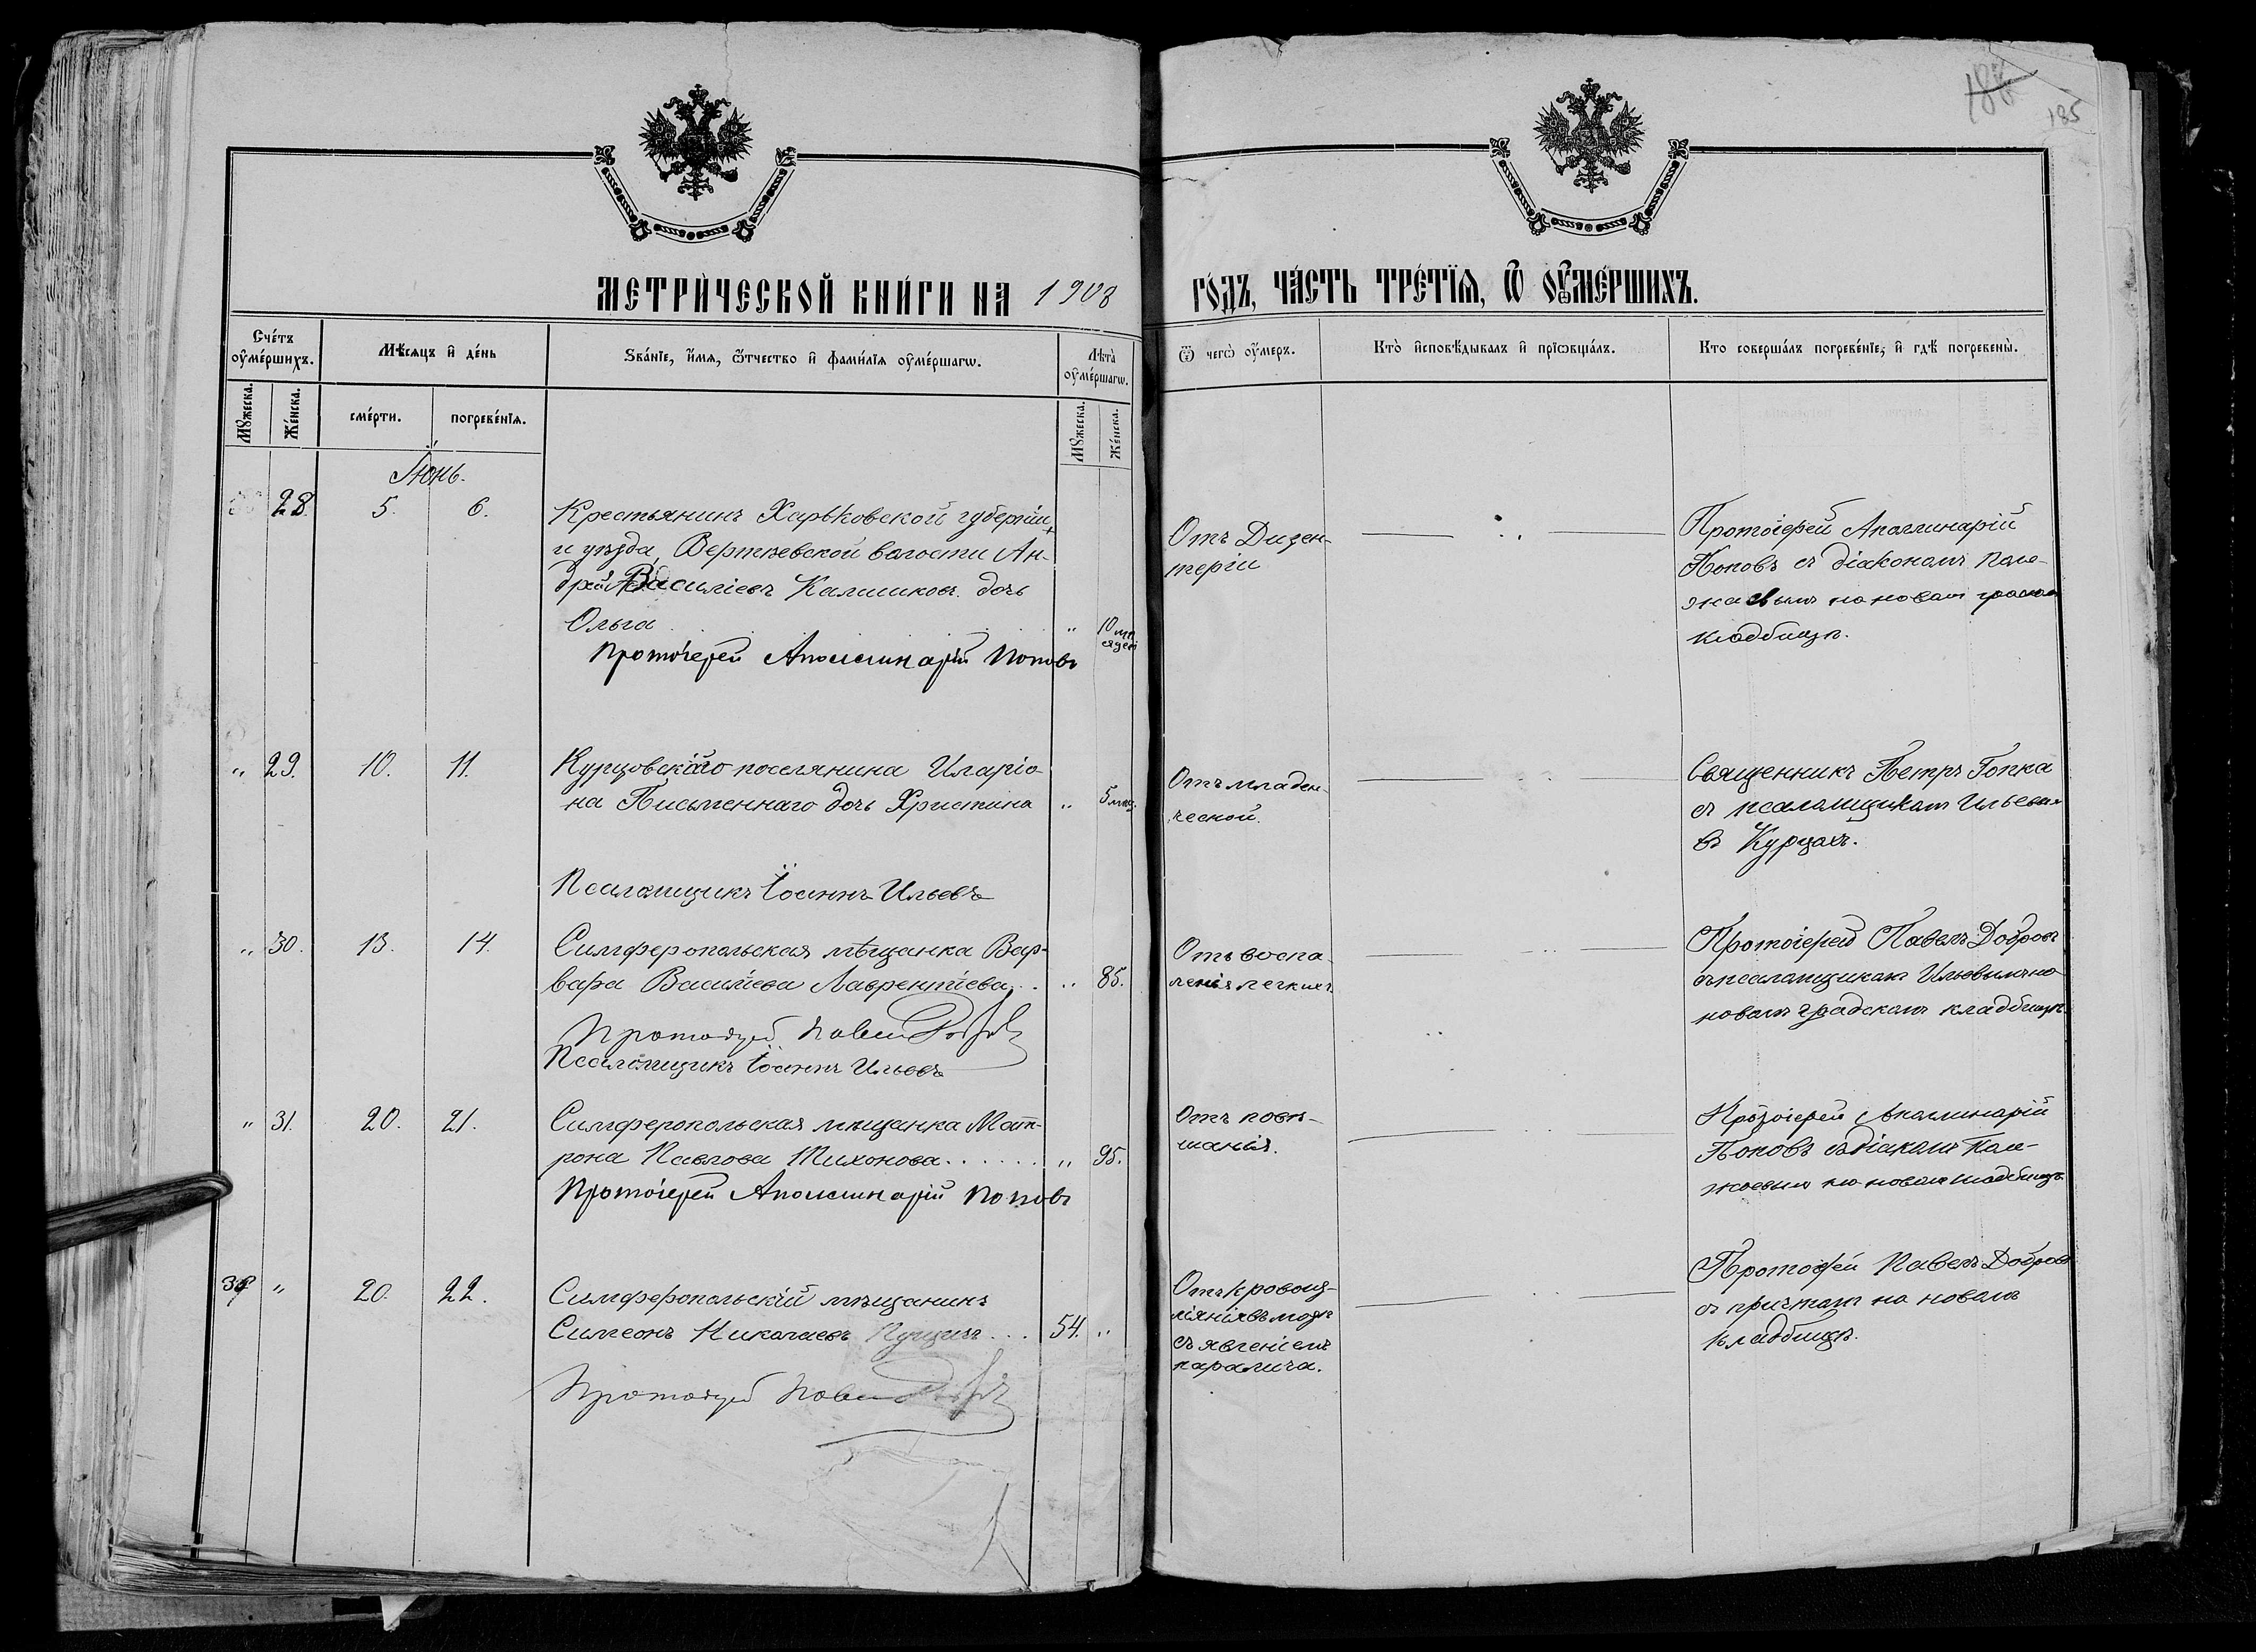 188
185
МЕТРИ́ЧЕСКОЙ КНИ́ГИ НА 1908
ГО́ДЪ, ЧА́СТЬ ТРЕ́ТЇѦ, Ѡ ОУ҆МЕ́РШИХЪ.
Сче́тъ оу҆ме́ршихъ.
Мѣ́сяцъ и҆ де́нь
Ѕва́нїе, и҆́мя, ѻ҆́тчество и҆ фами́лїя оу҆ме́ршагѡ.
Лѣ́та оу҆ме́ршагѡ.
Ѿ чегѡ̀ оу҆́меръ.
Кто̀ и҆сповѣ́дывалъ и҆ прїѡбща́лъ.
Кто соверша́лъ погребе́нїе, и҆ гдѣ̀ погребены̀.
Мꙋ́жеска.
Же́нска.
сме́рти.
погребе́нїя.
Мꙋ́жеска.
Же́нска.
Іюнь.
28. 5. 6. Крестьянинъ Харьковской губерніи
и уѣзда, Вертѣевской волости Ан-
дрей Василіевъ Калашниковъ дочь
Ольга " 10 мѣ
сяцев
Протоіерей Аполлинарій Поповъ
Отъ Дизен-
теріи
Протоіерей Аполлинарій
Поповъ съ діакономъ
на новомъ
кладбищѣ.
" 29. 10. 11. Курцовскаго поселянина Иларіо-
на Письменнаго дочь Христина " 5 мѣс.
Псаломщикъ Іоаннъ Ильевъ
Отъ младен-
ческой.
Священникъ Петръ Гопка
съ псаломщикомъ Ильевымъ
въ Курцахъ.
" 30. 13. 14. Симферопольская мѣщанка Вар-
вара Василіева Лаврентіева " 85.
Протоіерей Павелъ Добровъ
Псаломщикъ Іоаннъ Ильевъ
Отъ воспа-
ленія легкихъ
Протоіерей Павелъ Добровъ
съ псаломщикомъ Ильевымъ на
новомъ градскомъ кладбищѣ.
" 31. 20. 21. Симферопольская мѣщанка Мат-
рона Павлова Тихонова " 95.
Протоіерей Аполлинарій Поповъ
Отъ повѣ-
шанія.
Протоіерей Аполлинарій
Поповъ съ діакомъ
на новомъ кладбищѣ
" 20. 22. Симферопольскій мѣщанинъ
Симеонъ Николаевъ 54. "
Протоіерей Павелъ Добровъ
Отъ кровоиз-
ліянія въ мозгъ
съ явленіемъ
паралича.
Протоіерей Павелъ Добровъ
съ причтомъ на новомъ
кладбищѣ.